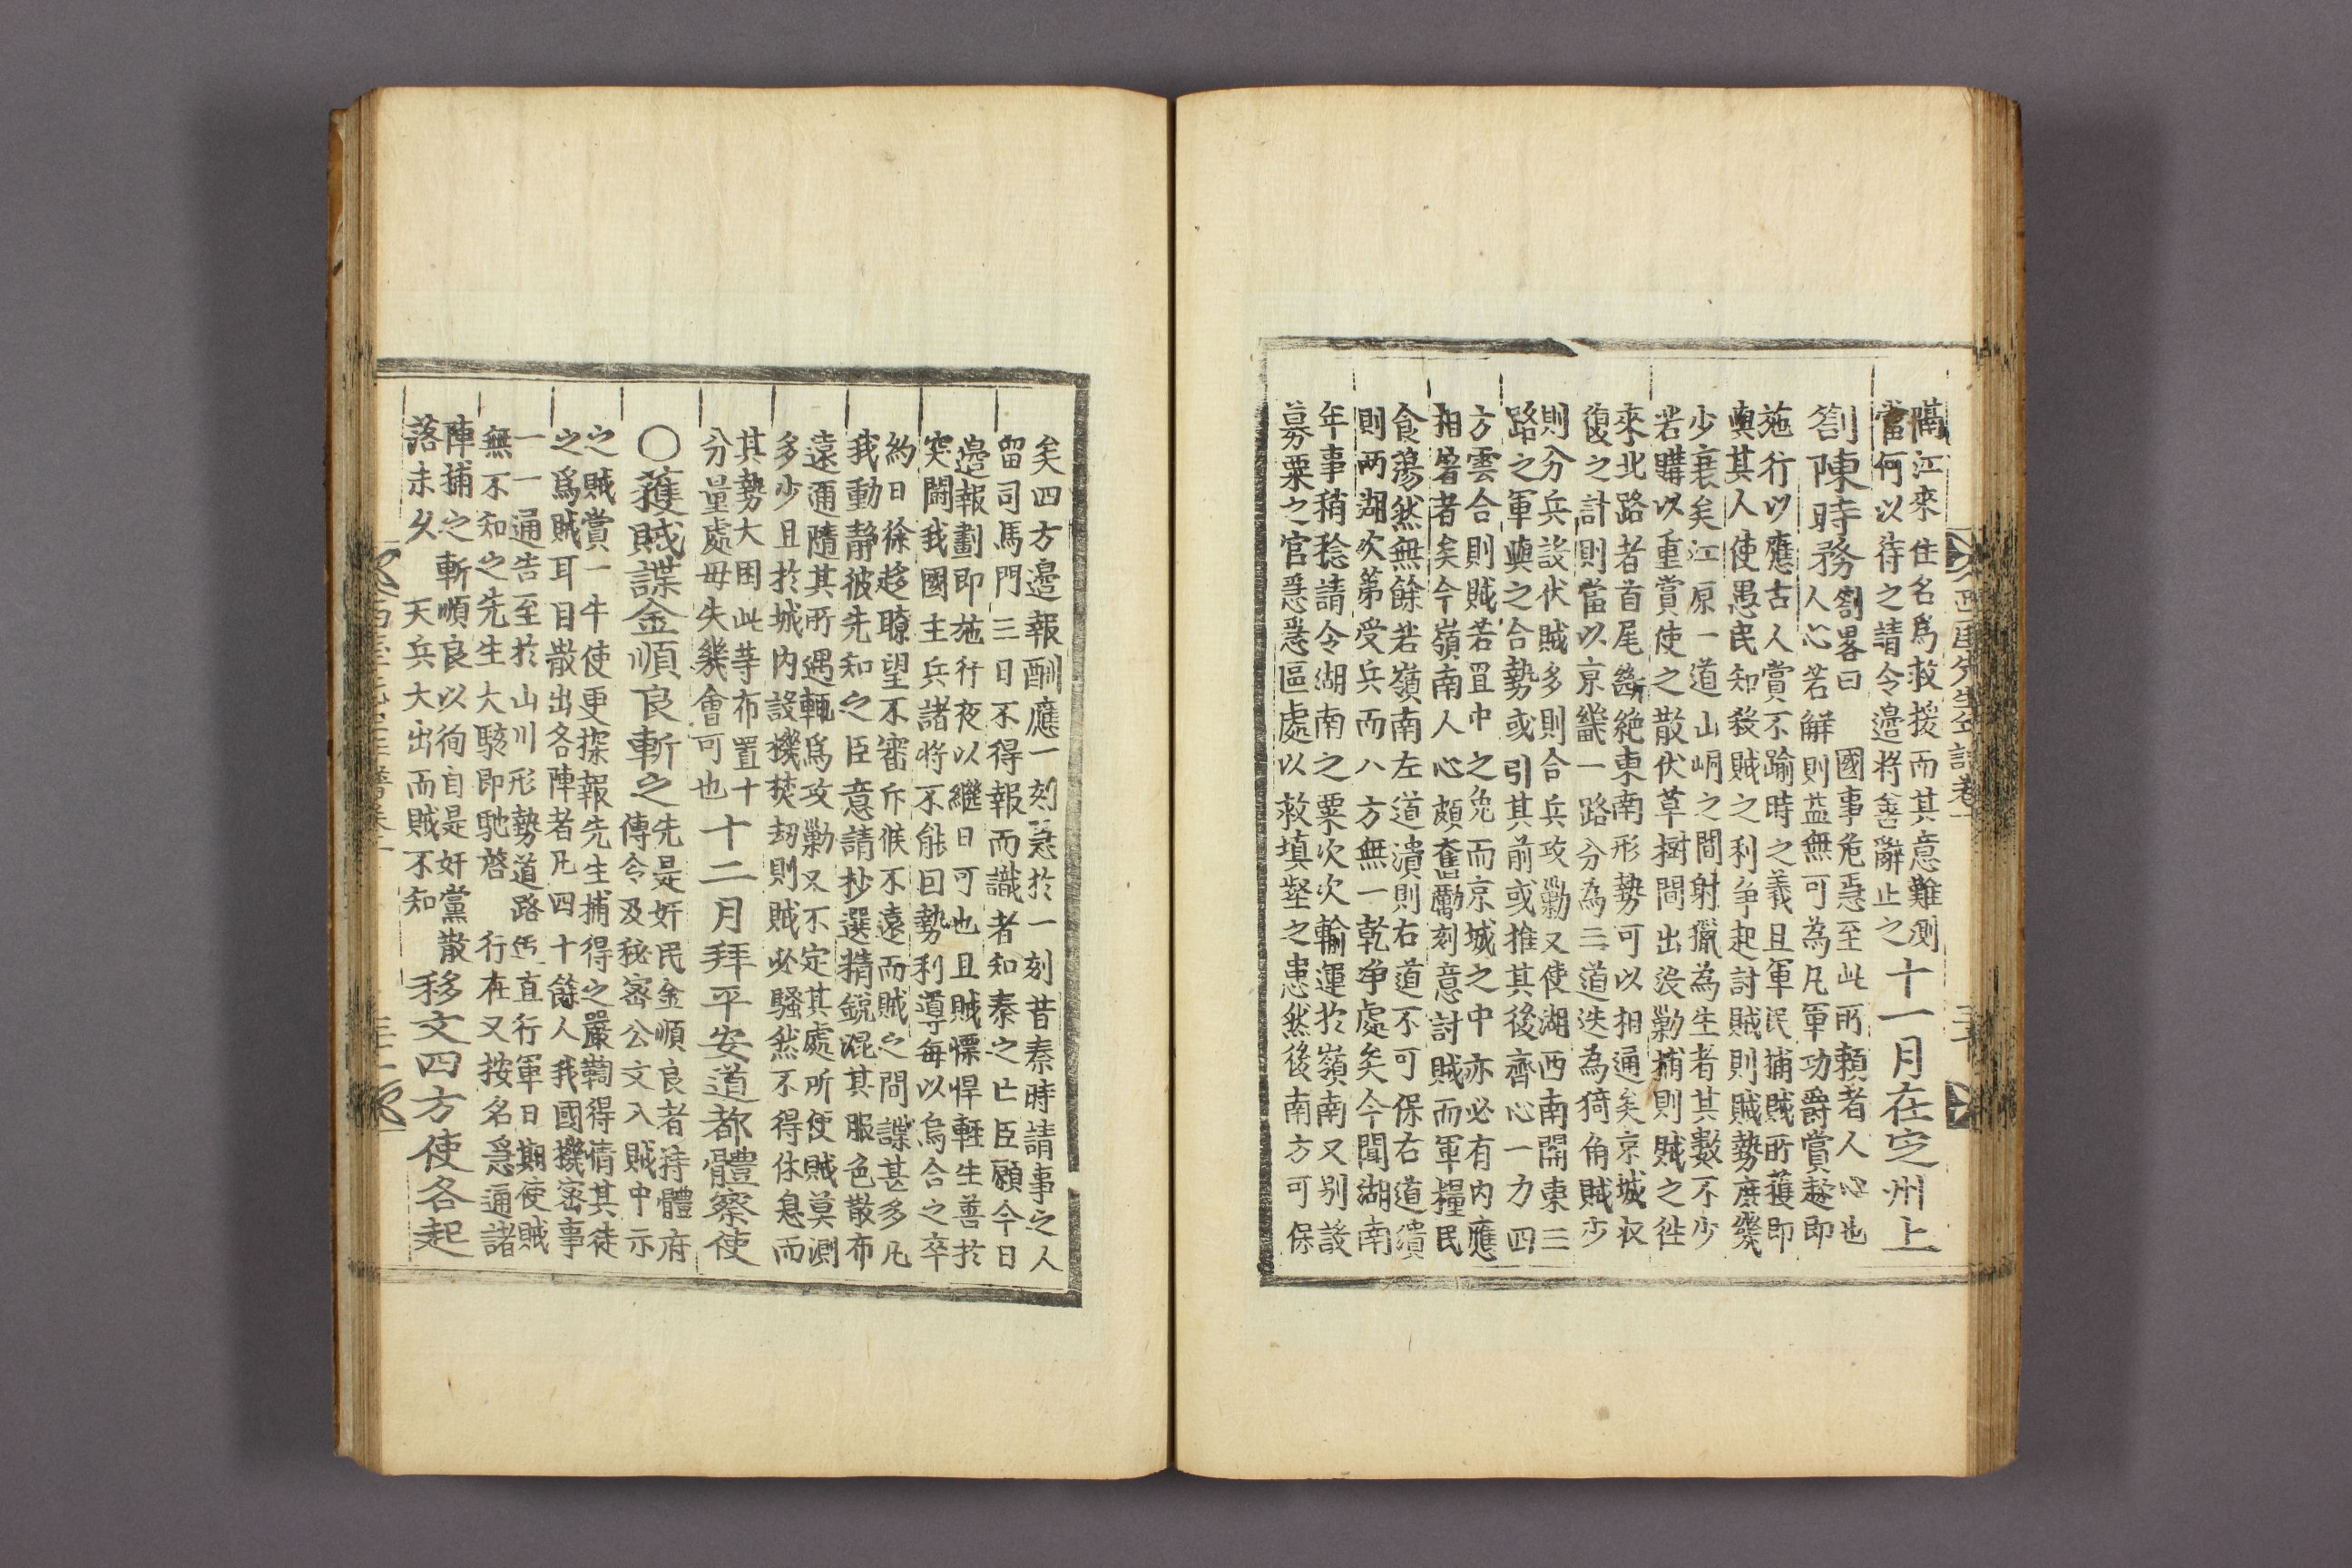 隔江來住名爲救援而其意難測
當何以待之請令邊將善辭止之
十一月在定州上
劄陳時務
劄畧曰 國事危惡至此所頼者人心也
人心若解則益無可為凡軍功爵賞趂即
施行以應古人賞不踰時之義且軍民捕賊所獲即
與其人使愚民知殺賊之利争起討賊則賊勢庶幾
少衰矣江原一道山峒之間射獵為生者其數不少
若購以重賞使之散伏草樹間出没勦捕則賊之徃
來北路者首尾斷絶東南形勢可以相通矣京城収
復之計則當以京畿一路分為三道迭為犄角賊少
則分兵設伏賊多則合兵攻勦又使湖西南開東三
路之軍與之合勢或引其前或推其後齊心一力四
方雲合則賊若罝中之兔而京城之中亦必有内應
相暑者矣今嶺南人心頗奮勵刻意討賊而軍糧民
食蕩然無餘若嶺南左道潰則右道不可保右道潰
則两湖次苐受兵而八方無一乾净處矣今聞湖南
年事稍稔請令湖南之粟次次輸運於嶺南又别設
募粟之官惡惡區處以救填壑之患然後南方可保
西厓先生年譜卷一
矣四方邊報酬應一刻急於一刻昔秦時請事之人
留司馬門三日不得報而識者知秦之亡臣願今日
邊報劃即施行夜以繼日可也且賊慓悍輕生善於
突鬪我國主兵諸將不能因勢利導每以烏合之卒
約日徐趍瞭望不審斥候不遠而賊之間諜甚多凡
我動静彼先知之臣意請抄選精銳混其服色散布
遠邇隨其所遇輒爲攻勦又不定其處所使賊莫測
多少且於城内設機焚刼則賊必騷然不得休息而
其勢大困此等布置十
分量處毋失幾會可也
十二月拜平安道都體察使
○獲賊諜金順良斬之
先是奸民金順良者持體府
傳令及秘密公文入賊中示
之賊賞一牛使更探報先生捕得之嚴鞫得情其徒
之爲賊耳目散出各陣者凡四十餘人我國機密事
一一通告至於山川形勢道路迃直行軍日期使賊
無不知之先生大駭即馳啓 行在又按名急通諸
陣捕之斬順良以徇自是奸黨散
落未久 天兵大出而賊不知
移文四方使各起